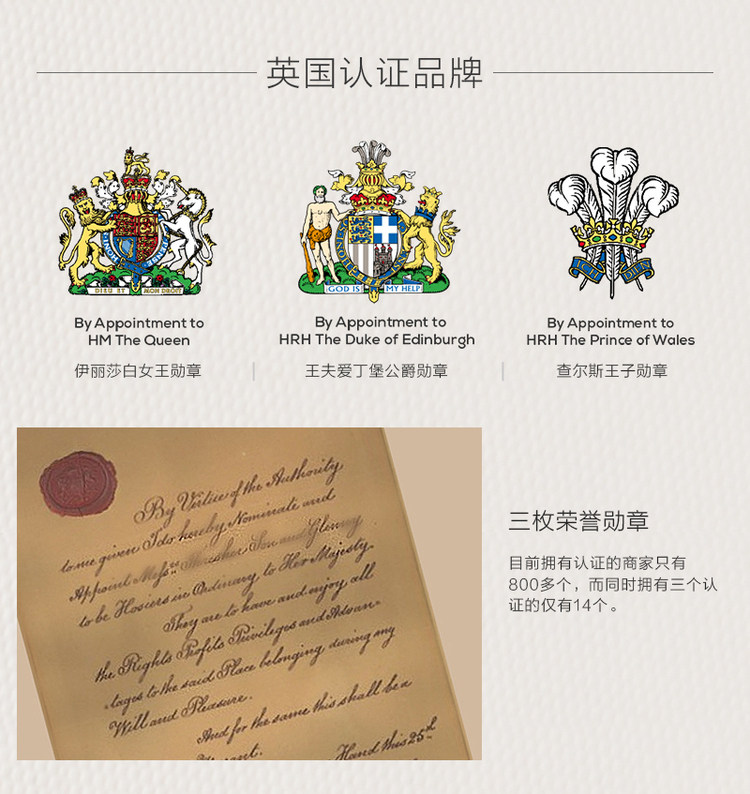 英国认证品牌
DIEU ET MON DROIT
GOD IS MY HELP
ICH DIEN
By Appointment to
HM The Queen
伊丽莎白女王勋章
By Appointment to
HRH The Duke of Edinburgh
王夫爱丁堡公爵勋章
By Appointment to
HRH The Prince of Wales
查尔斯王子勋章
By Virtue of the Authority
to me given I do hereby Nominate and
Appoint Mess.rs Son and
to be Hosiers in Ordinary to Her Majesty.
They are to have and enjoy all
the Rights Profits Privileges and Advan-
tages to the said Place belonging during my
Will and Pleasure.
And for the same this shall be a
Hand this 25th
三枚荣誉勋章
目前拥有认证的商家只有
800多个，而同时拥有三个认
证的仅有14个。